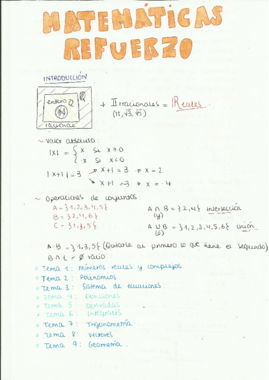 MATEMÁTICAS
REFUERZO
INTRODUCCIÓN
enteros Z
N
racionales
Q
+ II irracionales = Reales.
(π, √3, √7)
~ Valor absoluto:
|x| = { x si x ≥ 0
-x si x < 0
|x+1| = 3 → x+1 = 3 → x = 2
→ x+1 → x = -4
~ operaciones de conjuntos
A = {1,2,3,4,5}
B = {2,4,6}
C = {1,3,5}
A ∩ B = {2,4} intersección
(y)
A ∪ B = {1,2,3,4,5,6} unión
(o)
A - B = {1,3,5} (Quitarle al primero lo que tiene el segundo)
B ∩ C = ∅ vacío
Tema 1: Números reales y complejos
Tema 2: Polinomios
Tema 3: Sistema de ecuaciones
Tema 4: Funciones
Tema 5: Derivadas
Tema 6: Integrales
Tema 7: Trigonometría
Tema 8: Vectores
Tema 9: Geometría.